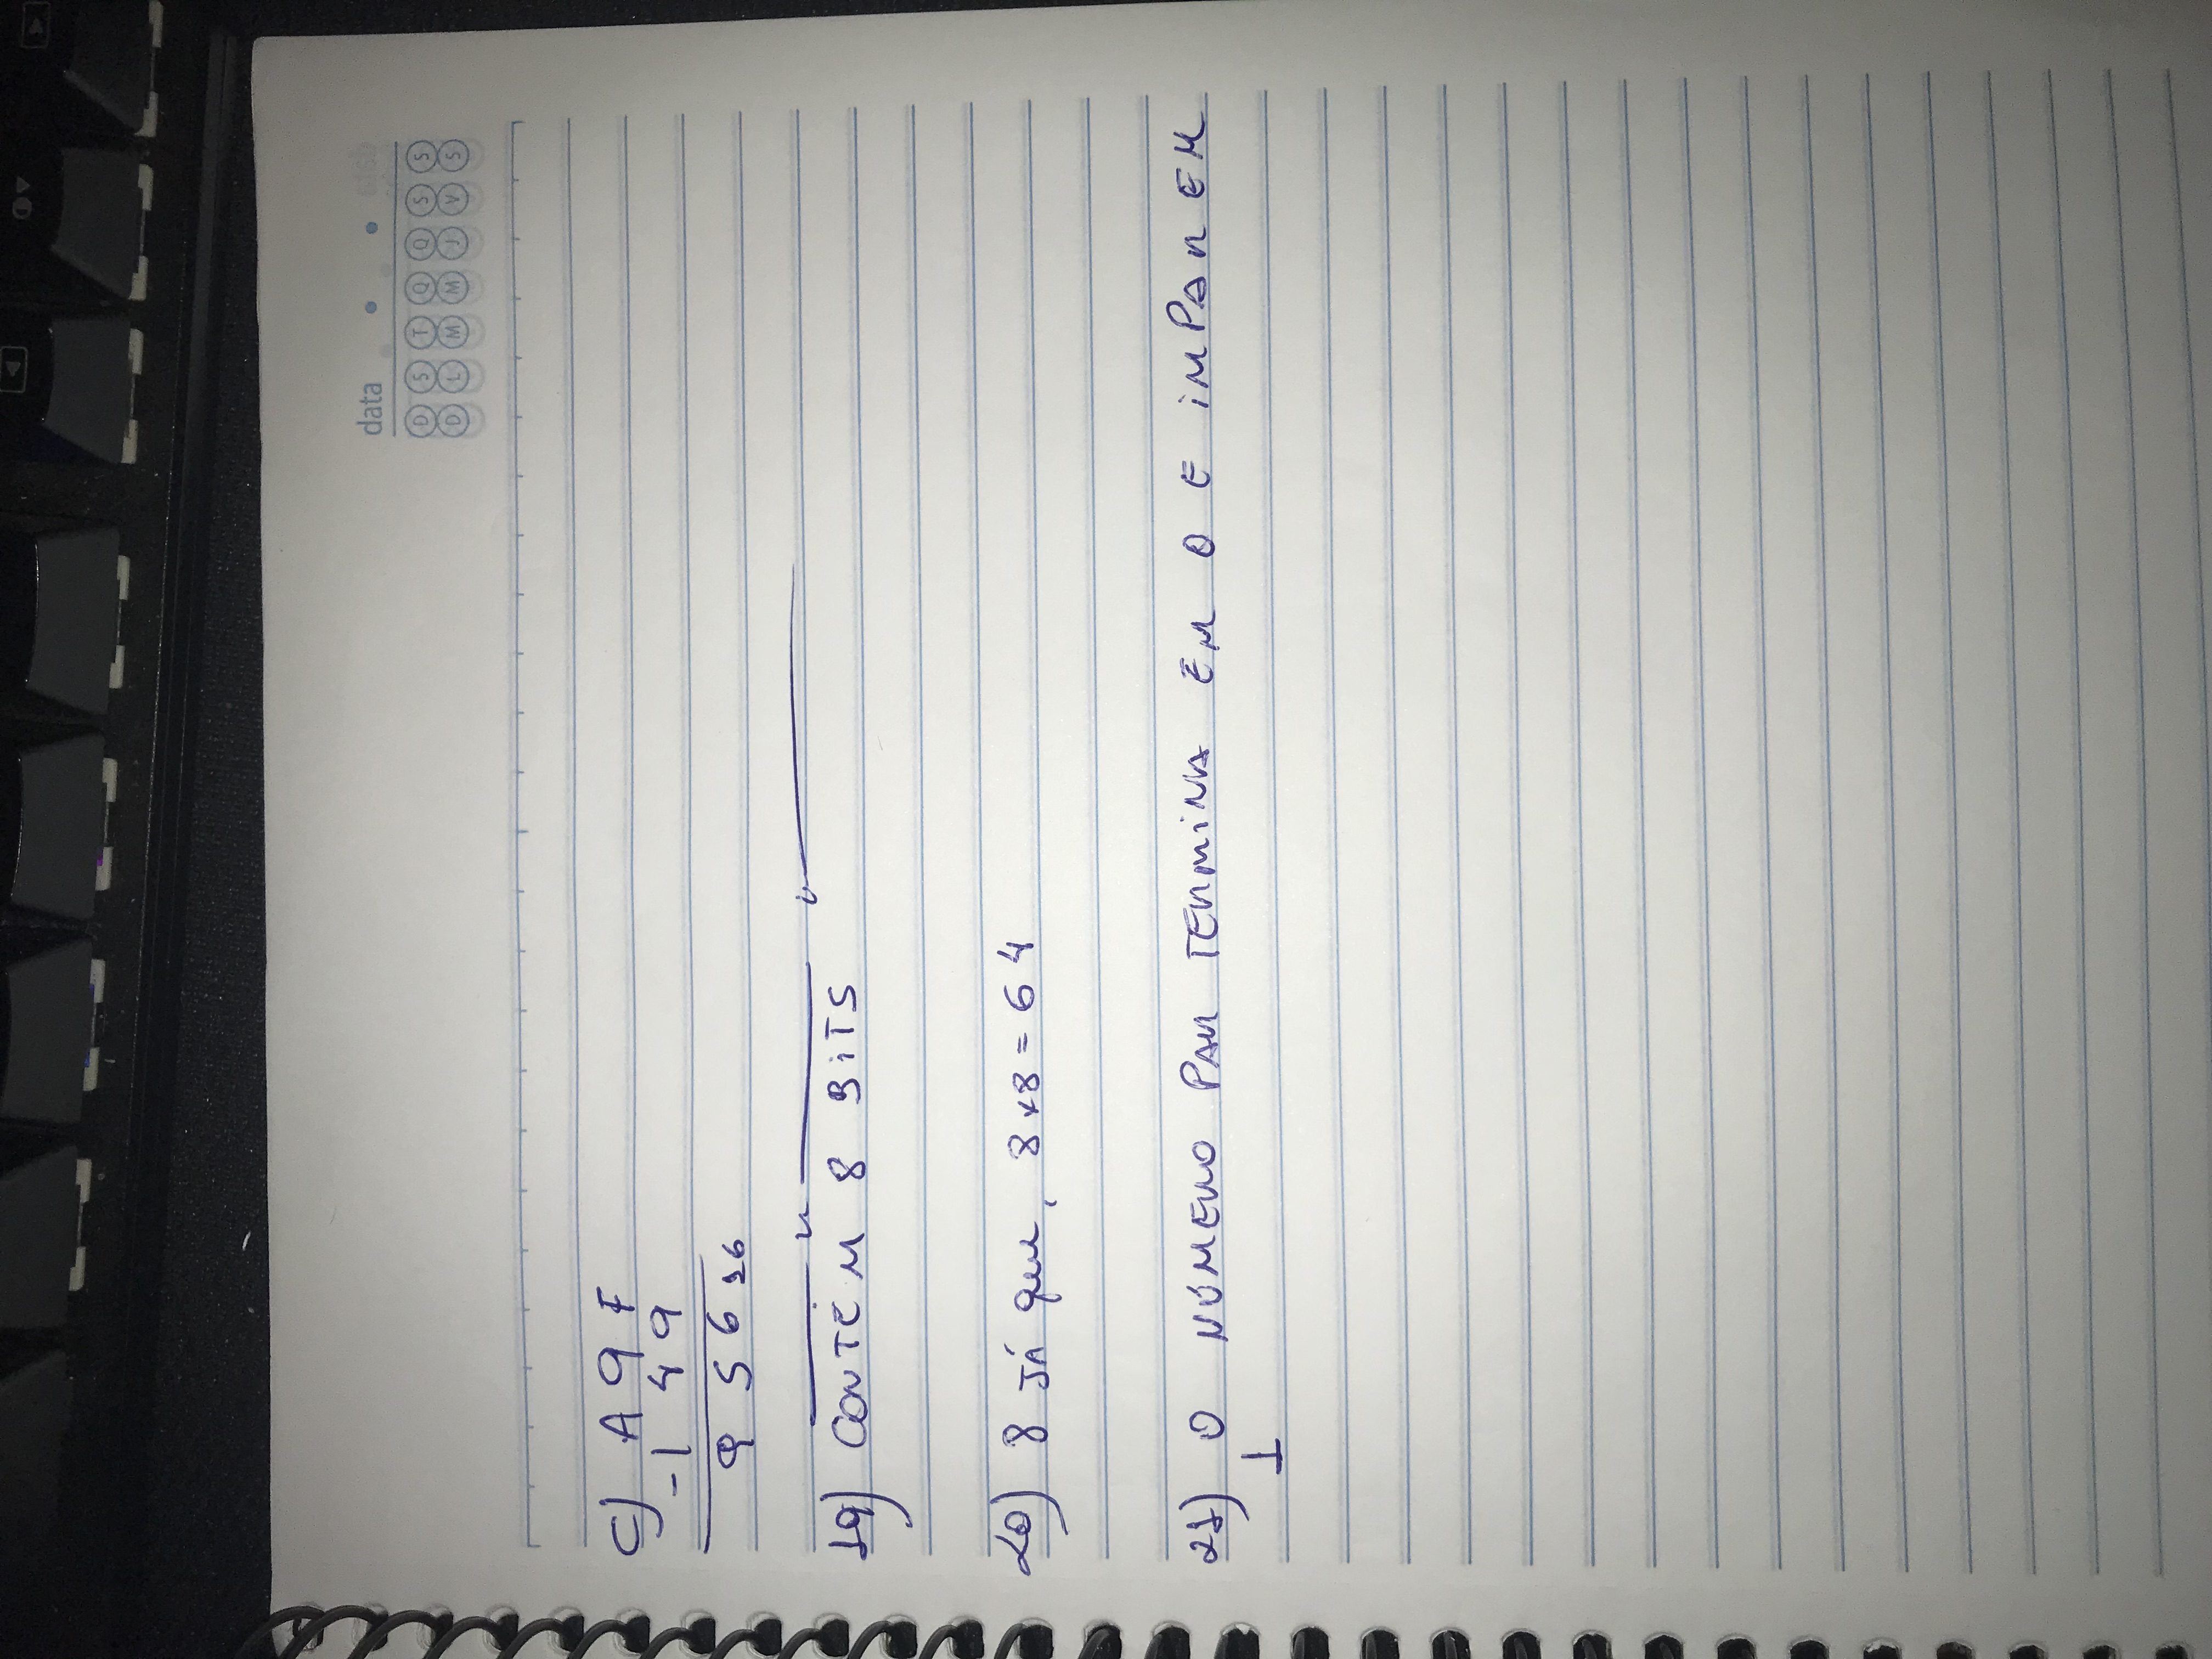 data
D S T Q Q S S
D L M M J V S
C) A 9 F
-1 4 9
9 5 6 16
19) CONTÉM 8 BiTS
20) 8 JÁ que, 8x8=64
21) O NÚMERO PAR TERMINA EM 0 E iMPAR EM
1